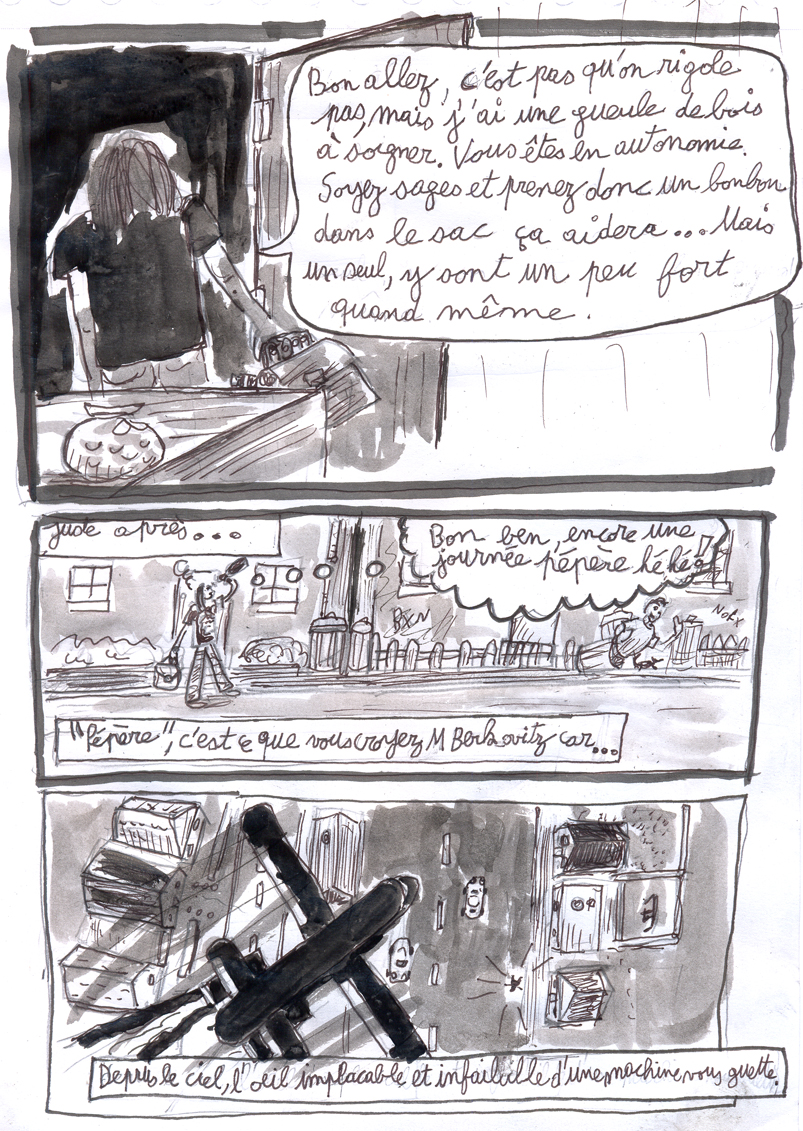 Bon allez, c'est pas qu'on rigole
pas, mais j'ai une gueule de bois
à soigner. Vous êtes en autonomie.
Soyez sages et prenez donc un bonbon
dans le sac ça aidera... Mais
un seul, y sont un peu fort
quand même.
juste après...
Bon ben, encore une
journée pépère héhé
"Pépère", c'est ce que vous croyez M Berkovitz car...
Depuis le ciel, l'oeil implacable et infaillible d'une machine vous guette.